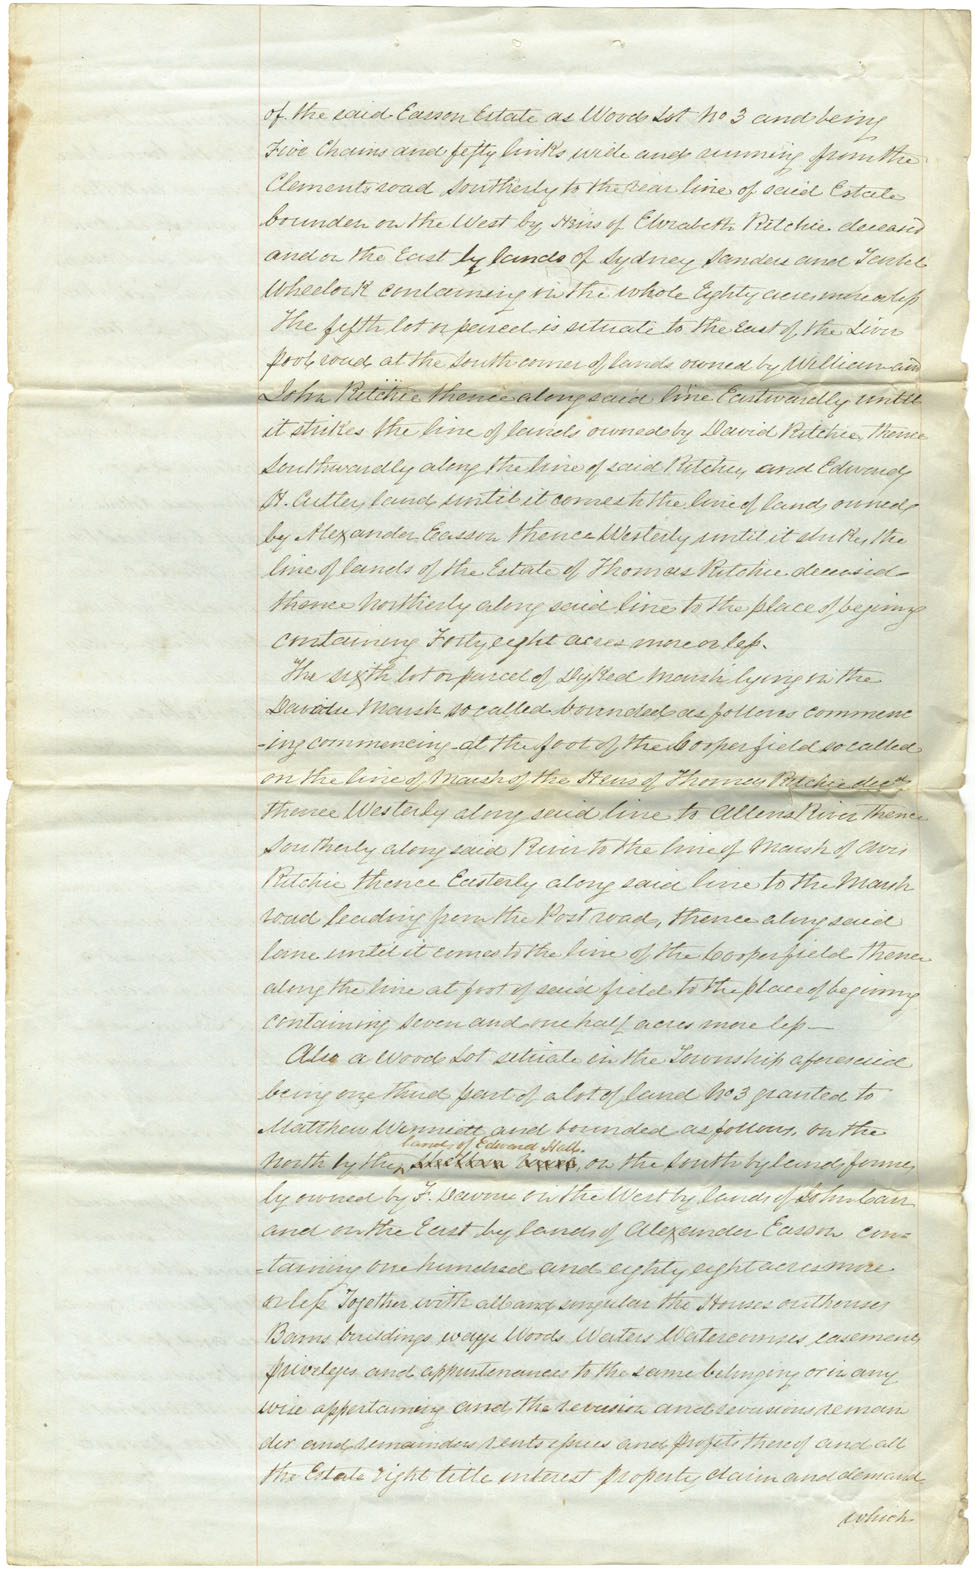 of the said Easson Estate as Wood Lot No 3 and being
Five Chains and fifty links wide and running from the
Clements road Southerly to the rear line of said Estate
bounden on the West by Heirs of Elizabeth Ritchie deceased
and on the East by lands of Sydney Sanders and
Wheelock containing in the whole Eighty acres more or less
The fifth lot or parcel is situate to the East of the Liver
pool road at the South corner of lands owned by William and
John Ritchie thence along said line Eastwardly until
it strikes the line of lands owned by David Ritchie, thence
Southwardly along the line of said Ritchie, and Edward
H. Cutler, land until it comes to the line of land, owned
by Alexander Easson thence Westerly until it strikes the
line of lands of the Estate of Thomas Ritchie deceased
thence Northerly along said line to the place of begining
containing Forty eight acres more or less.
The sixth lot or parcel of Dyked Marsh lying in the
Marsh so called bounded as follows commenc
-ing commencing at the foot of the Cooperfield so called
on the line of Marsh of the Heirs of Thomas Ritchie decd
thence Westerly along said line to Allens River thence
Southerly along said River to the line of Marsh of Avis
Ritchie thence Easterly along said line to the Marsh
road leading from the Post road, thence along said
lane until it comes to the line of the Cooperfield thence
along the line at foot of said field to the place of begining
containing Seven and one half acres more less —
Also a Wood Lot situate in the Township aforesaid
being one third part of a lot of land No 3 granted to
Matthew Winniett and bounded as follows, on the
lands of Edward Hall.
North by the on the South by lands former
ly owned by F. on the West by lands of John Carr
and on the East by lands of Alexander Easson con=
=taining one hundred and eighty eight acres more
or less Together with all and singular the Houses outhouses
Barns buildings ways Woods Waters Watercourses easements
priveleges and appurtenances to the same belonging or in any
wise appertaining and the revision and revisions remain
der and remainders rents issues and profits thereof and all
the Estate right title interest property claim and demand
which